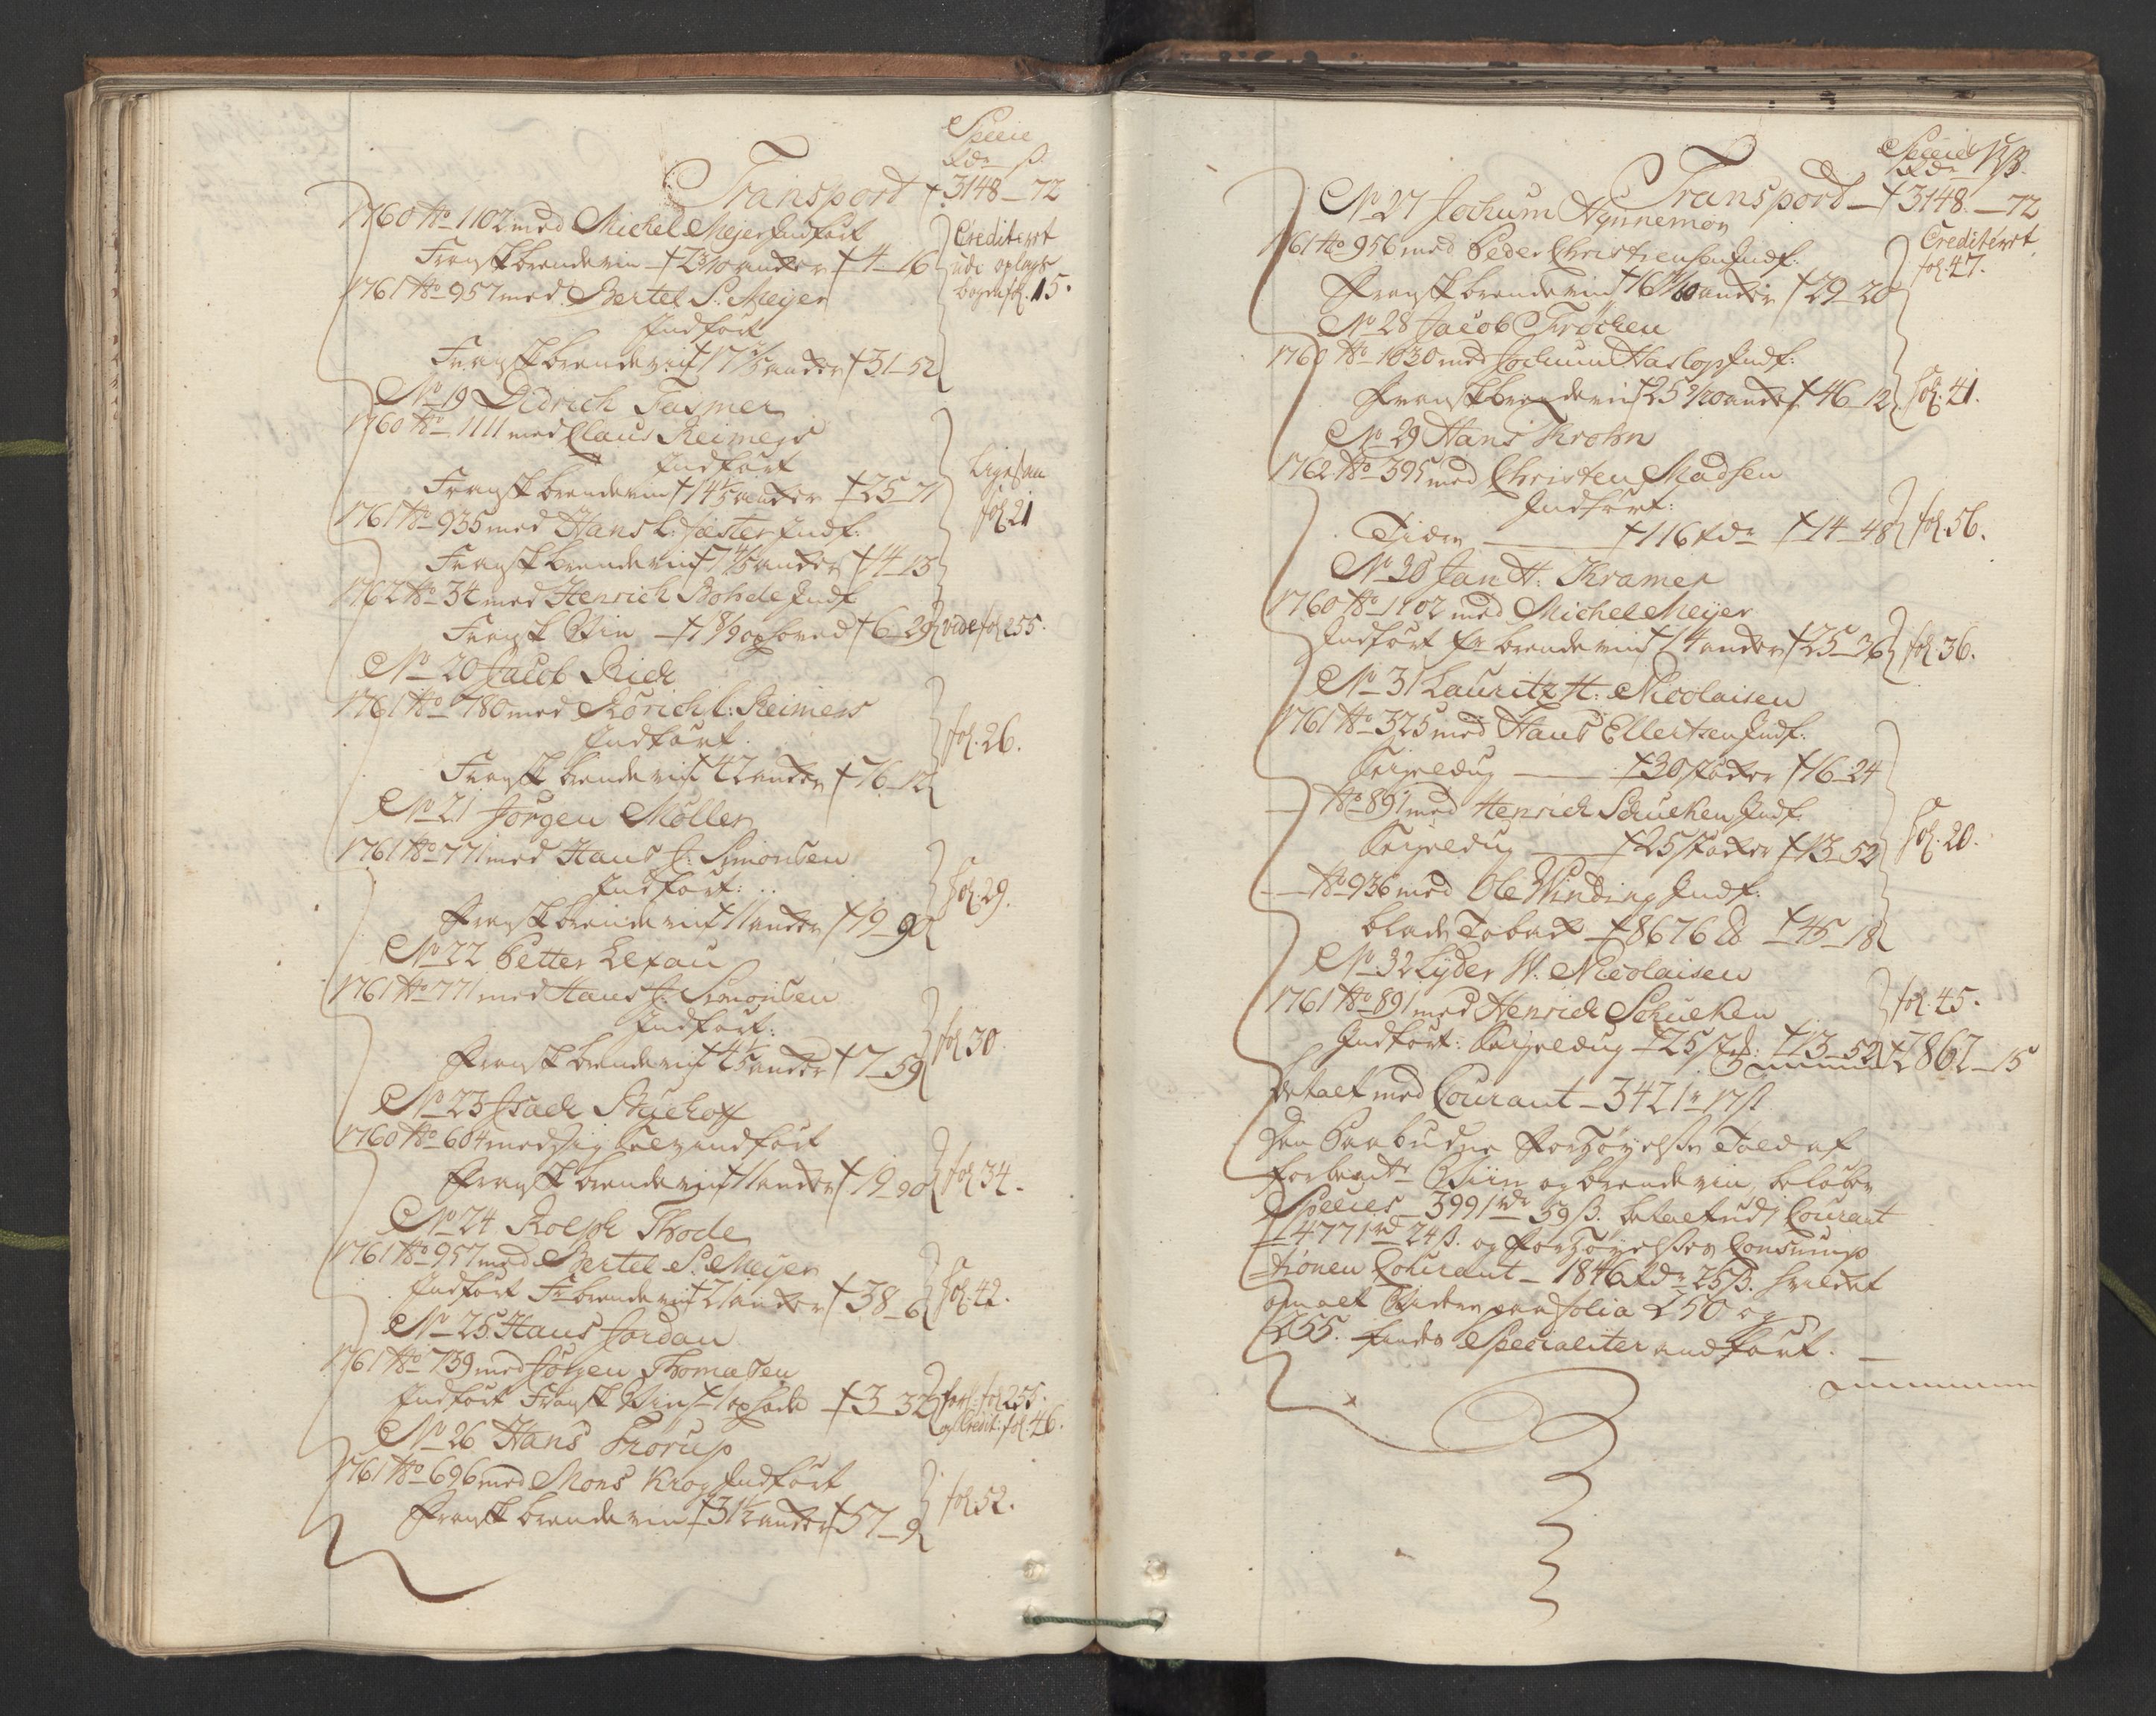 Specie
Rdr ß.
Transport 3148 - 72
1760 No 1102 med Michel Mejer Indført
Fransk brendeviin 2 3/10 anker 4 - 16
Crediteret
udi oplags
bogen fol. 15.
1761 No 957 med Bertel S. Meyer
Indført
Fransk brendeviin 17 2/5 anker 31 - 52
No 19 Didrich Fasmer
1760 No 1111 med Claus Reimers
Indført
Fransk brendeviin 14 1/5 anker 25 - 71
Ligesaa
fol. 21
1761 No 935 med Hans L: Jester Indf:
Fransk brendeviin 7 4/5 anker 14 - 13
1762 No 34 med Henrich Bohde Indf
Fransk Viin 1 8/9 oxhoved 6 - 29 vide fol 255.
No 20 Jacob Rick
1761 No 780 med Rorich L: Reimers
Indført
Fransk brendeviin 42 anker 76 - 12
fol. 26.
No 21 Jørgen Møller
1761 No 771 med Hans J: Simonsen
Indført:
Fransk brendeviin 11 anker 19 - 90
fol. 29.
No 22 Petter Lexau
1761 No 771 med Hans J: Simonsen
Indført:
Fransk brendeviin 4 2/5 anker 7 - 59
fol 30.
No 23 Isach Buchoff
1760 No 604 med sig selv indført
Fransk brendeviin 11 anker 19 - 90 fol. 34.
No 24 Roleph Thode
1761 No 957 med Bertel S. Meyer
Indført Fr brendeviin 21 anker 38 - 6 fol. 42.
No 25 Hans Jordan
1761 No 739 med Jørgen Thomasen
Indført Fransk Viin 1 oxhode 3 - 32 forl: fol 255.
og Credit: fol. 46.
No 26 Hans Frørup
1761 No 696 med Mons Krog Indført
Fransk brendeviin 31 1/2 anker 57 - 9
fol. 52.
Specie
Rdr ß.
Transport - 3148 - 72
No 27 Jochum Hynnemør
1761 No 956 med Peder Christensen Indf:
Fransk brendeviin 16 anker 29 - 20
Crediteret
fol. 47.
No 28 Jacob Frøchen
1760 No 1030 med Jochum Haslop Indf:
Fransk brendeviin 25 9/20 anker 46 - 12 fol. 41.
No 29 Hans Krohn
1762 No 395 med Christen Madsen
Indført:
Tiere 116 tdr 14 - 48 fol. 56.
No 30 Jan H: Kramer
1760 No 1102 med Michel Meyer
Indført Fr brendeviin 14 anker 25 - 36 fol. 36.
No 31 Lauritz H: Nicolaisen
1761 No 325 med Hans Ellertzen Indf:
Seyeldug 30 støcker 16 - 24
- No 891 med Henrich Schucken Indf.
Seyeldug 25 støcker 13 - 52
fol. 20.
- No 936 med Ole Winding Indf:
blade Toback 8676 lb 45 - 18
No 32 Lyder W. Nicolaisen
1761 No 891 med Henrich Schucken
fol. 45.
Indført: Seyeldug 25 st: 13 - 52 2862 - 15
betalt med Courant - 3421 r 17 ß
Den Paabudne Forhøyelse Told af
forberørte Viin og brendeviin, beløber
Species - 3991 rdr 59 ß. betalt udj Courant
4771 rd 24 ß. og Forhøyelses Consump
tionen Courant - 1846 rdr 25 ß. hvilket
om alt videre paa folia 250 og
255. findes Specialiter anført.